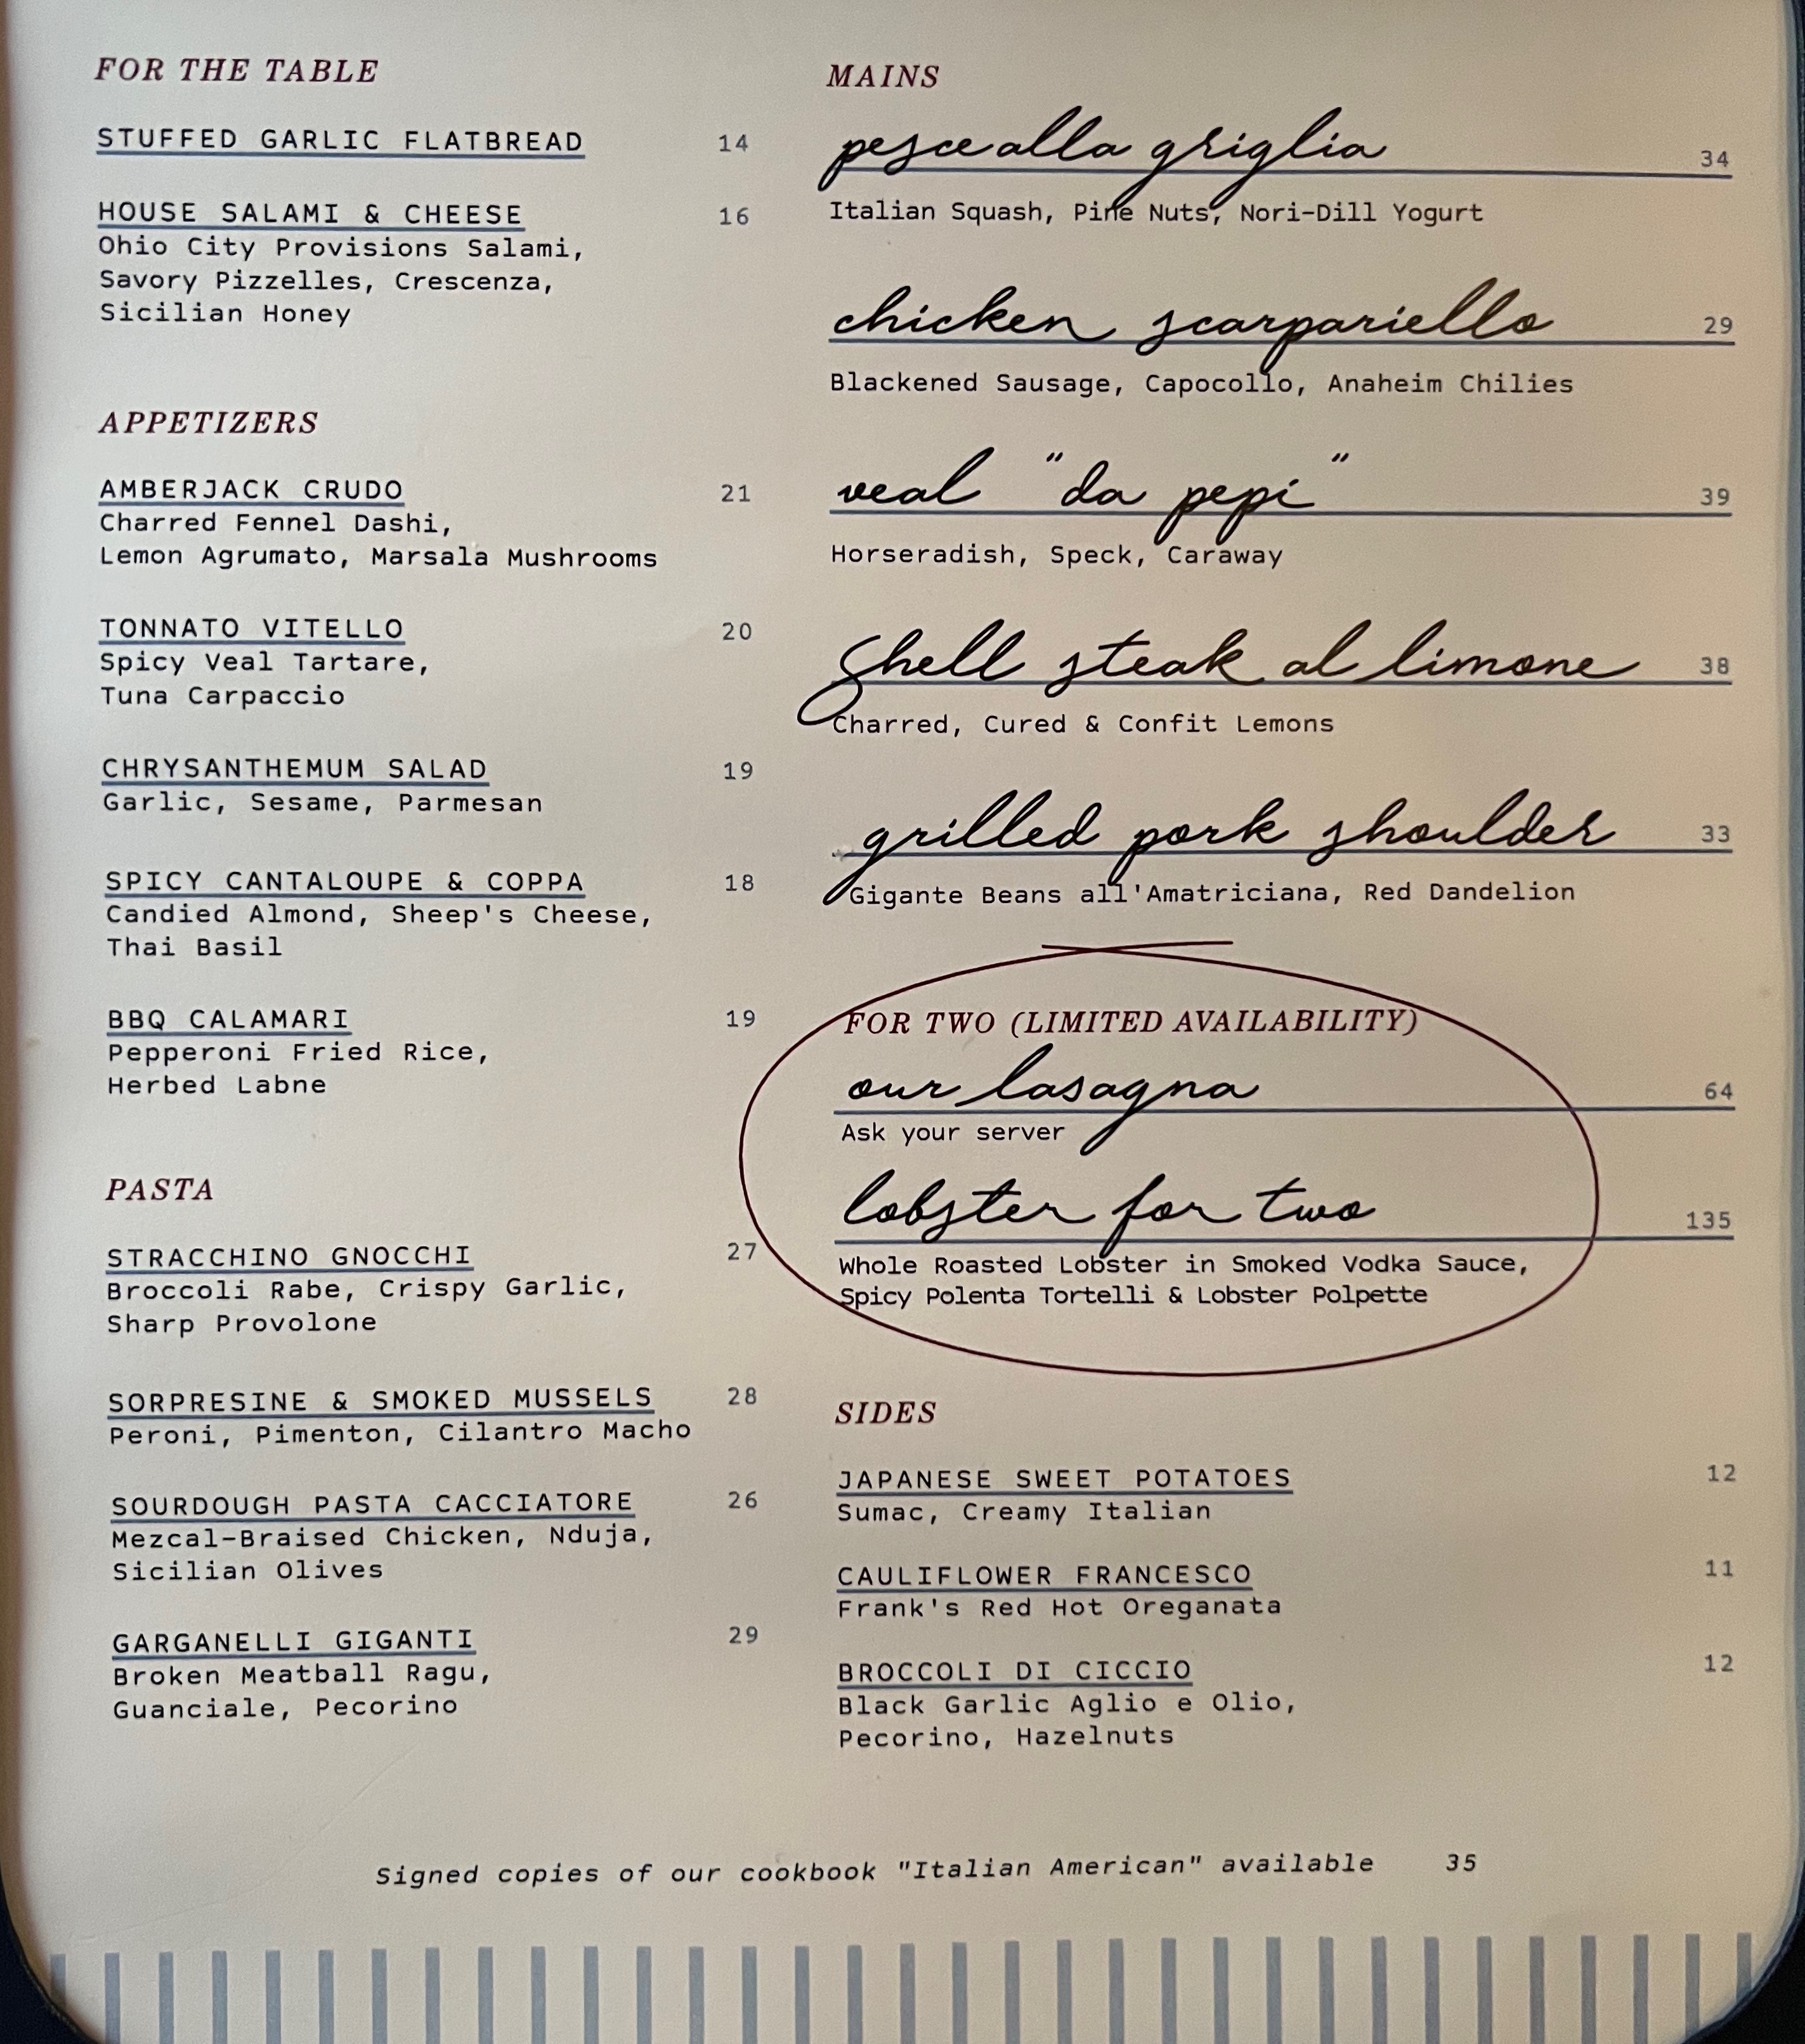 FOR THE TABLE
STUFFED GARLIC FLATBREAD 14
HOUSE SALAMI & CHEESE 16
Ohio City Provisions Salami,
Savory Pizzelles, Crescenza,
Sicilian Honey
APPETIZERS
AMBERJACK CRUDO 21
Charred Fennel Dashi,
Lemon Agrumato, Marsala Mushrooms
TONNATO VITELLO 20
Spicy Veal Tartare,
Tuna Carpaccio
CHRYSANTHEMUM SALAD 19
Garlic, Sesame, Parmesan
SPICY CANTALOUPE & COPPA 18
Candied Almond, Sheep's Cheese,
Thai Basil
BBQ CALAMARI 19
Pepperoni Fried Rice,
Herbed Labne
PASTA
STRACCHINO GNOCCHI 27
Broccoli Rabe, Crispy Garlic,
Sharp Provolone
SORPRESINE & SMOKED MUSSELS 28
Peroni, Pimenton, Cilantro Macho
SOURDOUGH PASTA CACCIATORE 26
Mezcal-Braised Chicken, Nduja,
Sicilian Olives
GARGANELLI GIGANTI 29
Broken Meatball Ragu,
Guanciale, Pecorino
MAINS
pesce alla griglia 34
Italian Squash, Pine Nuts, Nori-Dill Yogurt
chicken scarpariello 29
Blackened Sausage, Capocollo, Anaheim Chilies
veal "da pepi" 39
Horseradish, Speck, Caraway
Shell steak al limone 38
Charred, Cured & Confit Lemons
grilled pork shoulder 33
Gigante Beans all'Amatriciana, Red Dandelion
FOR TWO (LIMITED AVAILABILITY)
our lasagna 64
Ask your server
lobster for two 135
Whole Roasted Lobster in Smoked Vodka Sauce,
Spicy Polenta Tortelli & Lobster Polpette
SIDES
JAPANESE SWEET POTATOES 12
Sumac, Creamy Italian
CAULIFLOWER FRANCESCO 11
Frank's Red Hot Oreganata
BROCCOLI DI CICCIO 12
Black Garlic Aglio e Olio,
Pecorino, Hazelnuts
Signed copies of our cookbook "Italian American" available 35